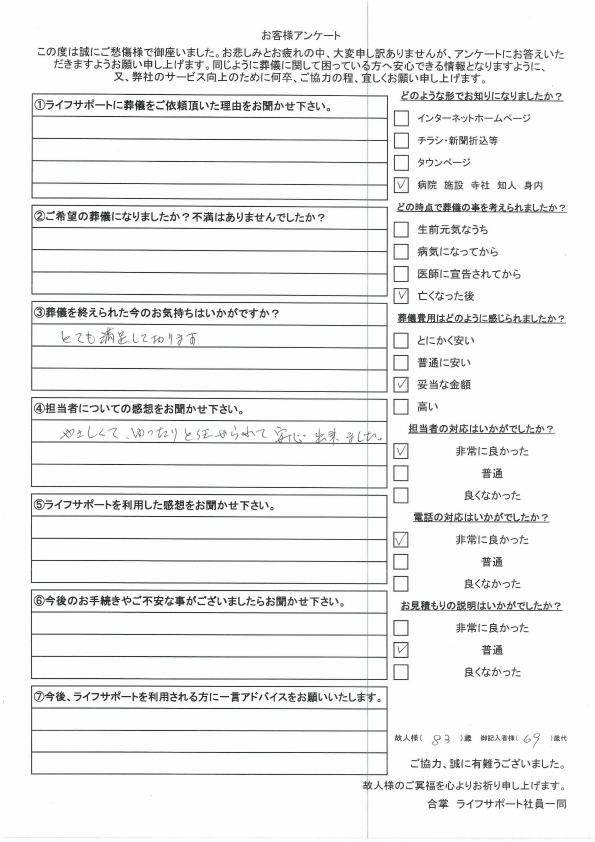 お客様アンケート
この度は誠にご愁傷様で御座いました。お悲しみとお疲れの中、大変申し訳ありませんが、アンケートにお答えいた
だきますようお願い申し上げます。同じように葬儀に関して困っている方へ安心できる情報となりますように、
又、弊社のサービス向上のために何卒、ご協力の程、宜しくお願い申し上げます。
①ライフサポートに葬儀をご依頼頂いた理由をお聞かせ下さい。
②ご希望の葬儀になりましたか？不満はありませんでしたか？
③葬儀を終えられた今のお気持ちはいかがですか？
とても満足して切ります
④担当者についての感想をお聞かせ下さい。
やさしくて、ゆったりと任せられて安心出来ました。
⑤ライフサポートを利用した感想をお聞かせ下さい。
⑥今後のお手続きやご不安な事がございましたらお聞かせ下さい。
⑦今後、ライフサポートを利用される方に一言アドバイスをお願いいたします。
どのような形でお知りになりましたか？
インターネットホームページ
チラシ・新聞折込等
タウンページ
✓ 病院 施設 寺社 知人 身内
どの時点で葬儀の事を考えられましたか？
生前元気なうち
病気になってから
医師に宣告されてから
✓ 亡くなった後
葬儀費用はどのように感じられましたか？
とにかく安い
普通に安い
✓ 妥当な金額
高い
担当者の対応はいかがでしたか？
✓ 非常に良かった
普通
良くなかった
電話の対応はいかがでしたか？
✓ 非常に良かった
普通
良くなかった
お見積もりの説明はいかがでしたか？
非常に良かった
✓ 普通
良くなかった
故人様( 83 )歳 御記入者様( 69 )歳代
ご協力、誠に有難うございました。
故人様のご冥福を心よりお祈り申し上げます。
合掌 ライフサポート社員一同